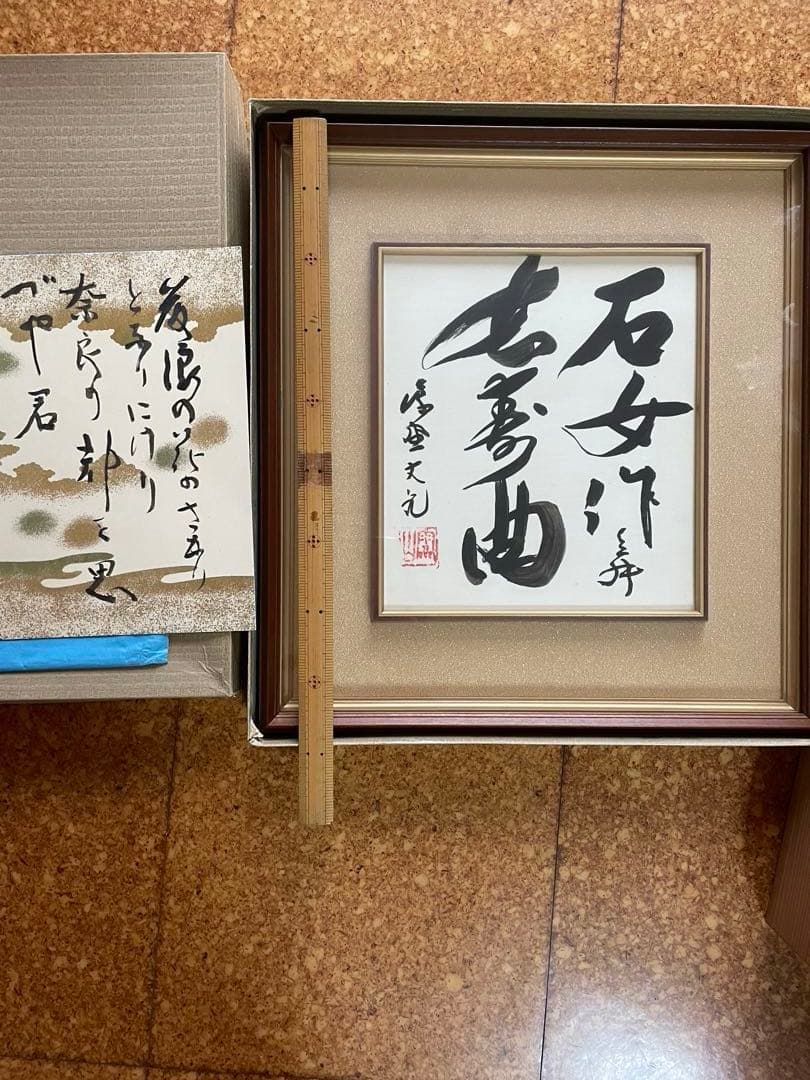 石女作舞
長寿曲
藤浪の花のさかり
となりにけり
奈良の都を思
や君